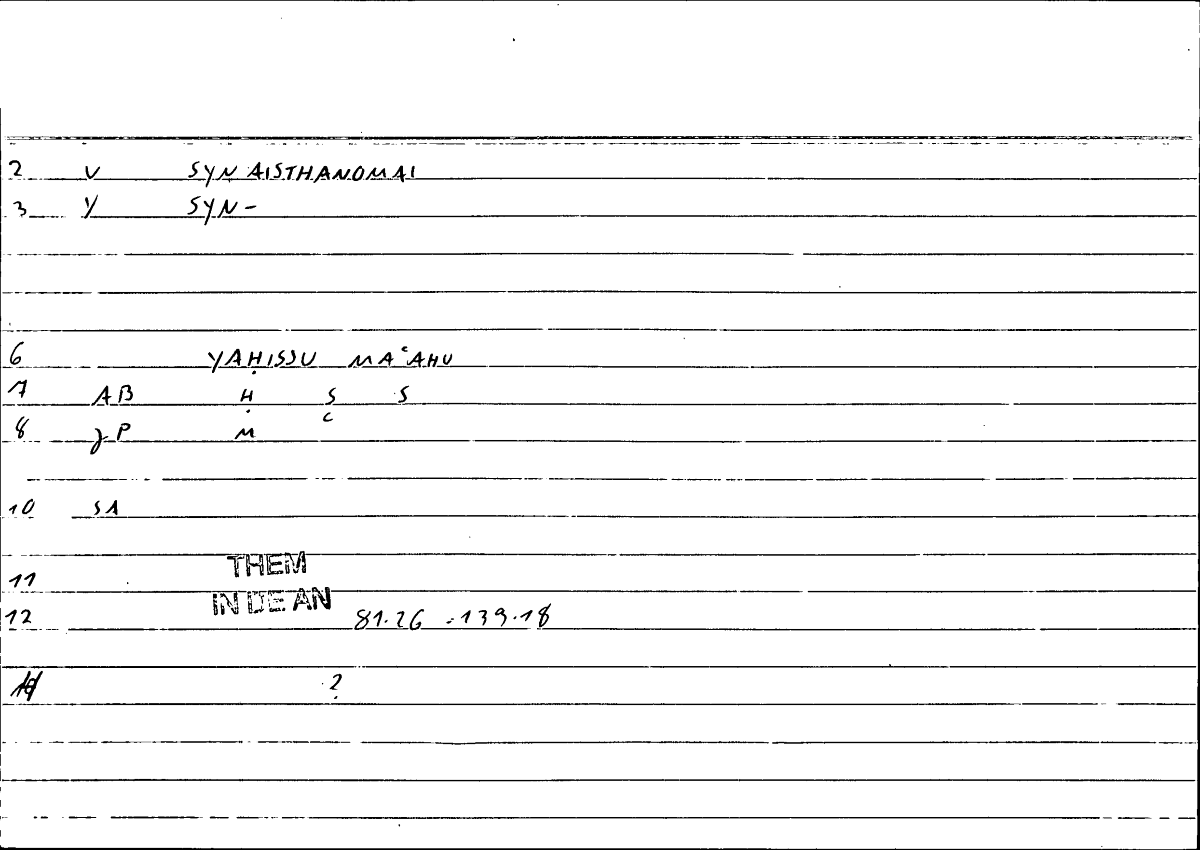 2 V SYNAISTHANOMAI
3 Y SYN-
6 YAḤISSU MAʿAHU
7 AB Ḥ S S
8 γP M ʿ
10 SA
THEM
11
IN DE AN
12 81.26 .139.18
14 ?